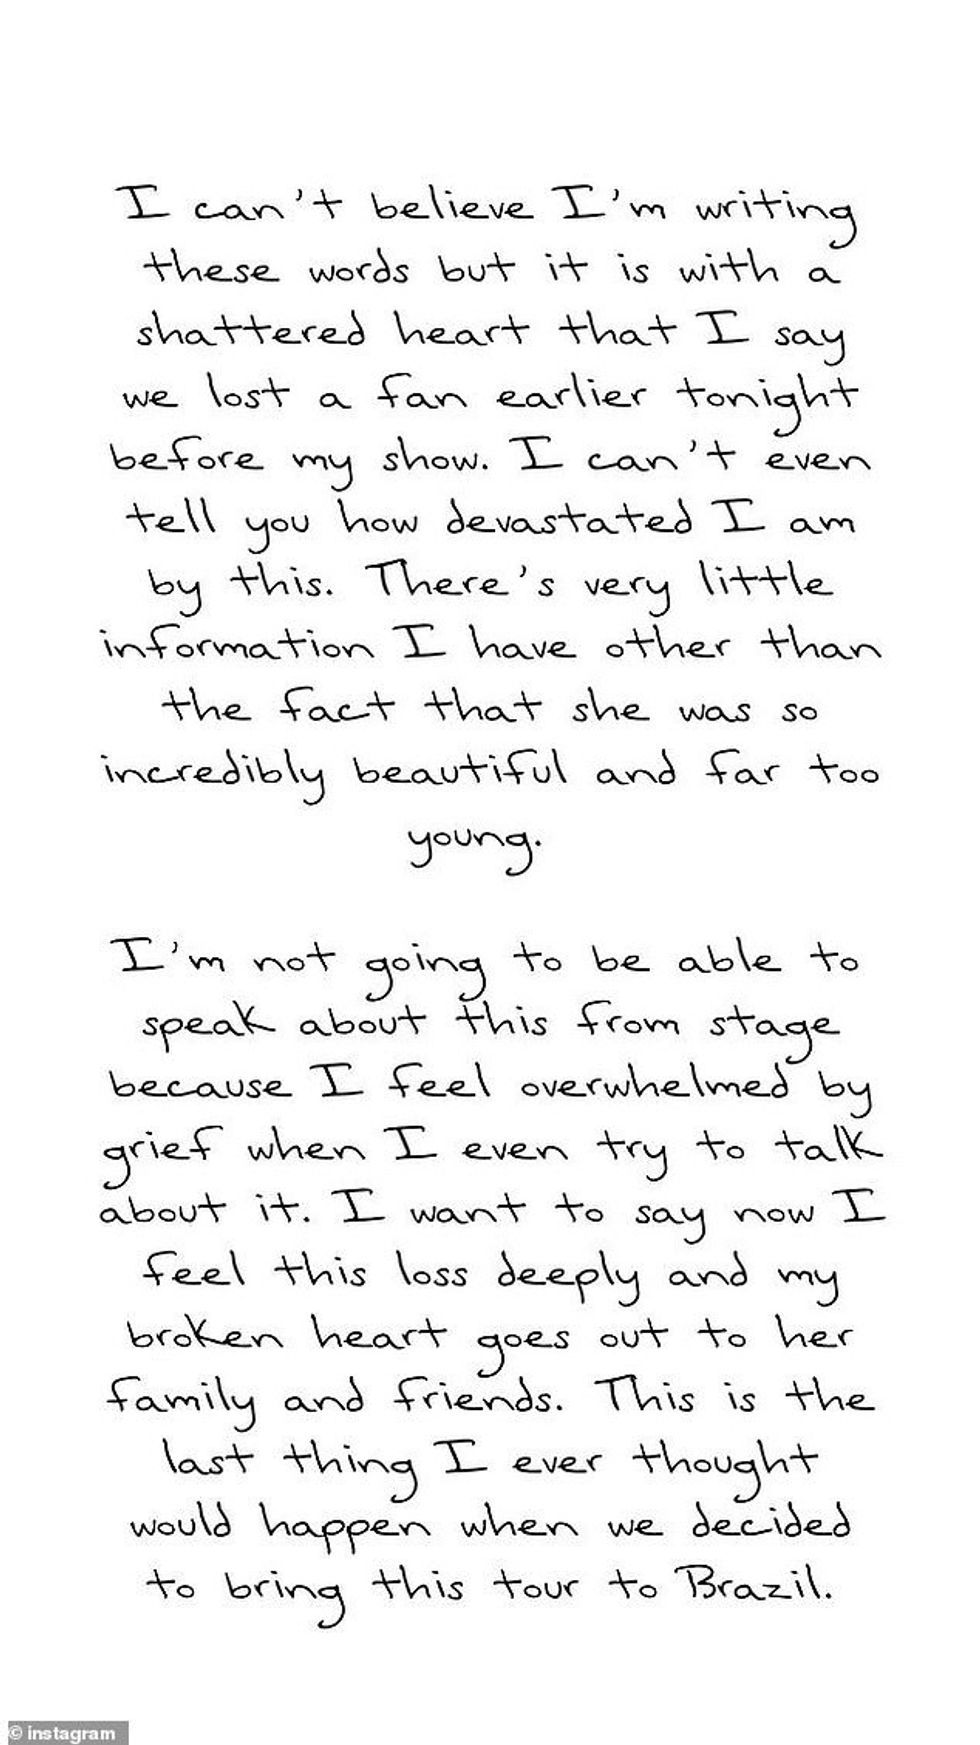 I can't believe I'm writing
these words but it is with a
shattered heart that I say
we lost a fan earlier tonight
before my show. I can't even
tell you how devastated I am
by this. There's very little
information I have other than
the fact that she was so
incredibly beautiful and far too
young.
I'm not going to be able to
speak about this from stage
because I feel overwhelmed by
grief when I even try to talk
about it. I want to say now I
feel this loss deeply and my
broken heart goes out to her
family and friends. This is the
last thing I ever thought
would happen when we decided
to bring this tour to Brazil.
© instagram